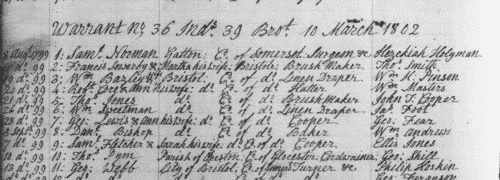 Warrant No 36 Inds. 39 Brot. 10 March 1802
Augt 99 1: Saml. Norman Co. of Somerset Surgeon & Hezekiah Holyman
do. 99 2: Francis & Martha his wife: Bristol: Brush Maker Thos. Smith
do. 99 3: Wm. Bristol: Co. of do. Linen Draper Wm. K. Pinson
do. 99 4: Robt. & Ann his wife: do. Co. of do. Hatter Wm. Masters
do. 99 5: Thos. Jones do. Co. of do. Brush Maker John T. Cooper
do. 99 6: Wm. Sweetman do. Co. of do. Linen Draper Jas. Foot
do. 99 7: Geo: Lewis & Ann his wife: do. Co. of do. Cooper Geo: Fear
Sept. 99 8: Danl. Bishop do. Co. of do. Baker Wm. Andrews
7 do. 99 9: Saml. Fletcher & Sarah his wife: do. Co. of do. Cooper Ellis Jones
10 do. 99 10: Thos. Pym Parish of Co. of Glocester: Cordwainer Geo: Shill
13 do. 99 11: Geo: Webb City of Bristol: Co. of Turner &c Philip Hoskin
Ferguson